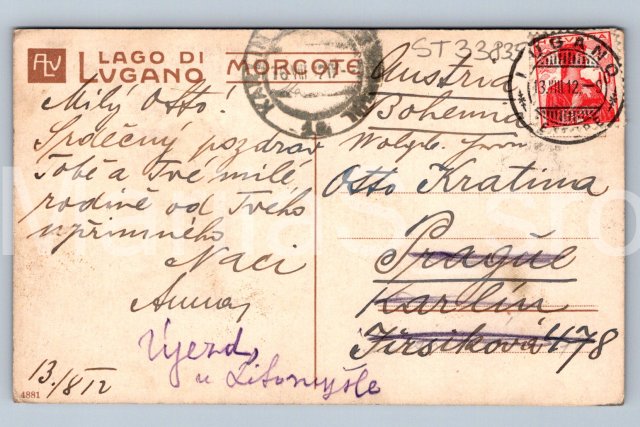 ALV
LAGO DI
LUGANO
MORCOTE
ST33835
Milý Otto!
Srdečný pozdrav
Tobě a Tvé milé
rodině od Tvého
upřímného
Naci
13./8 12
4881
Austria
Bohemia
Otto Kratina
Prague
Karlín
Jirsíková 478
Újezd,
u Litomyšle
LUGANO
13.VIII.12